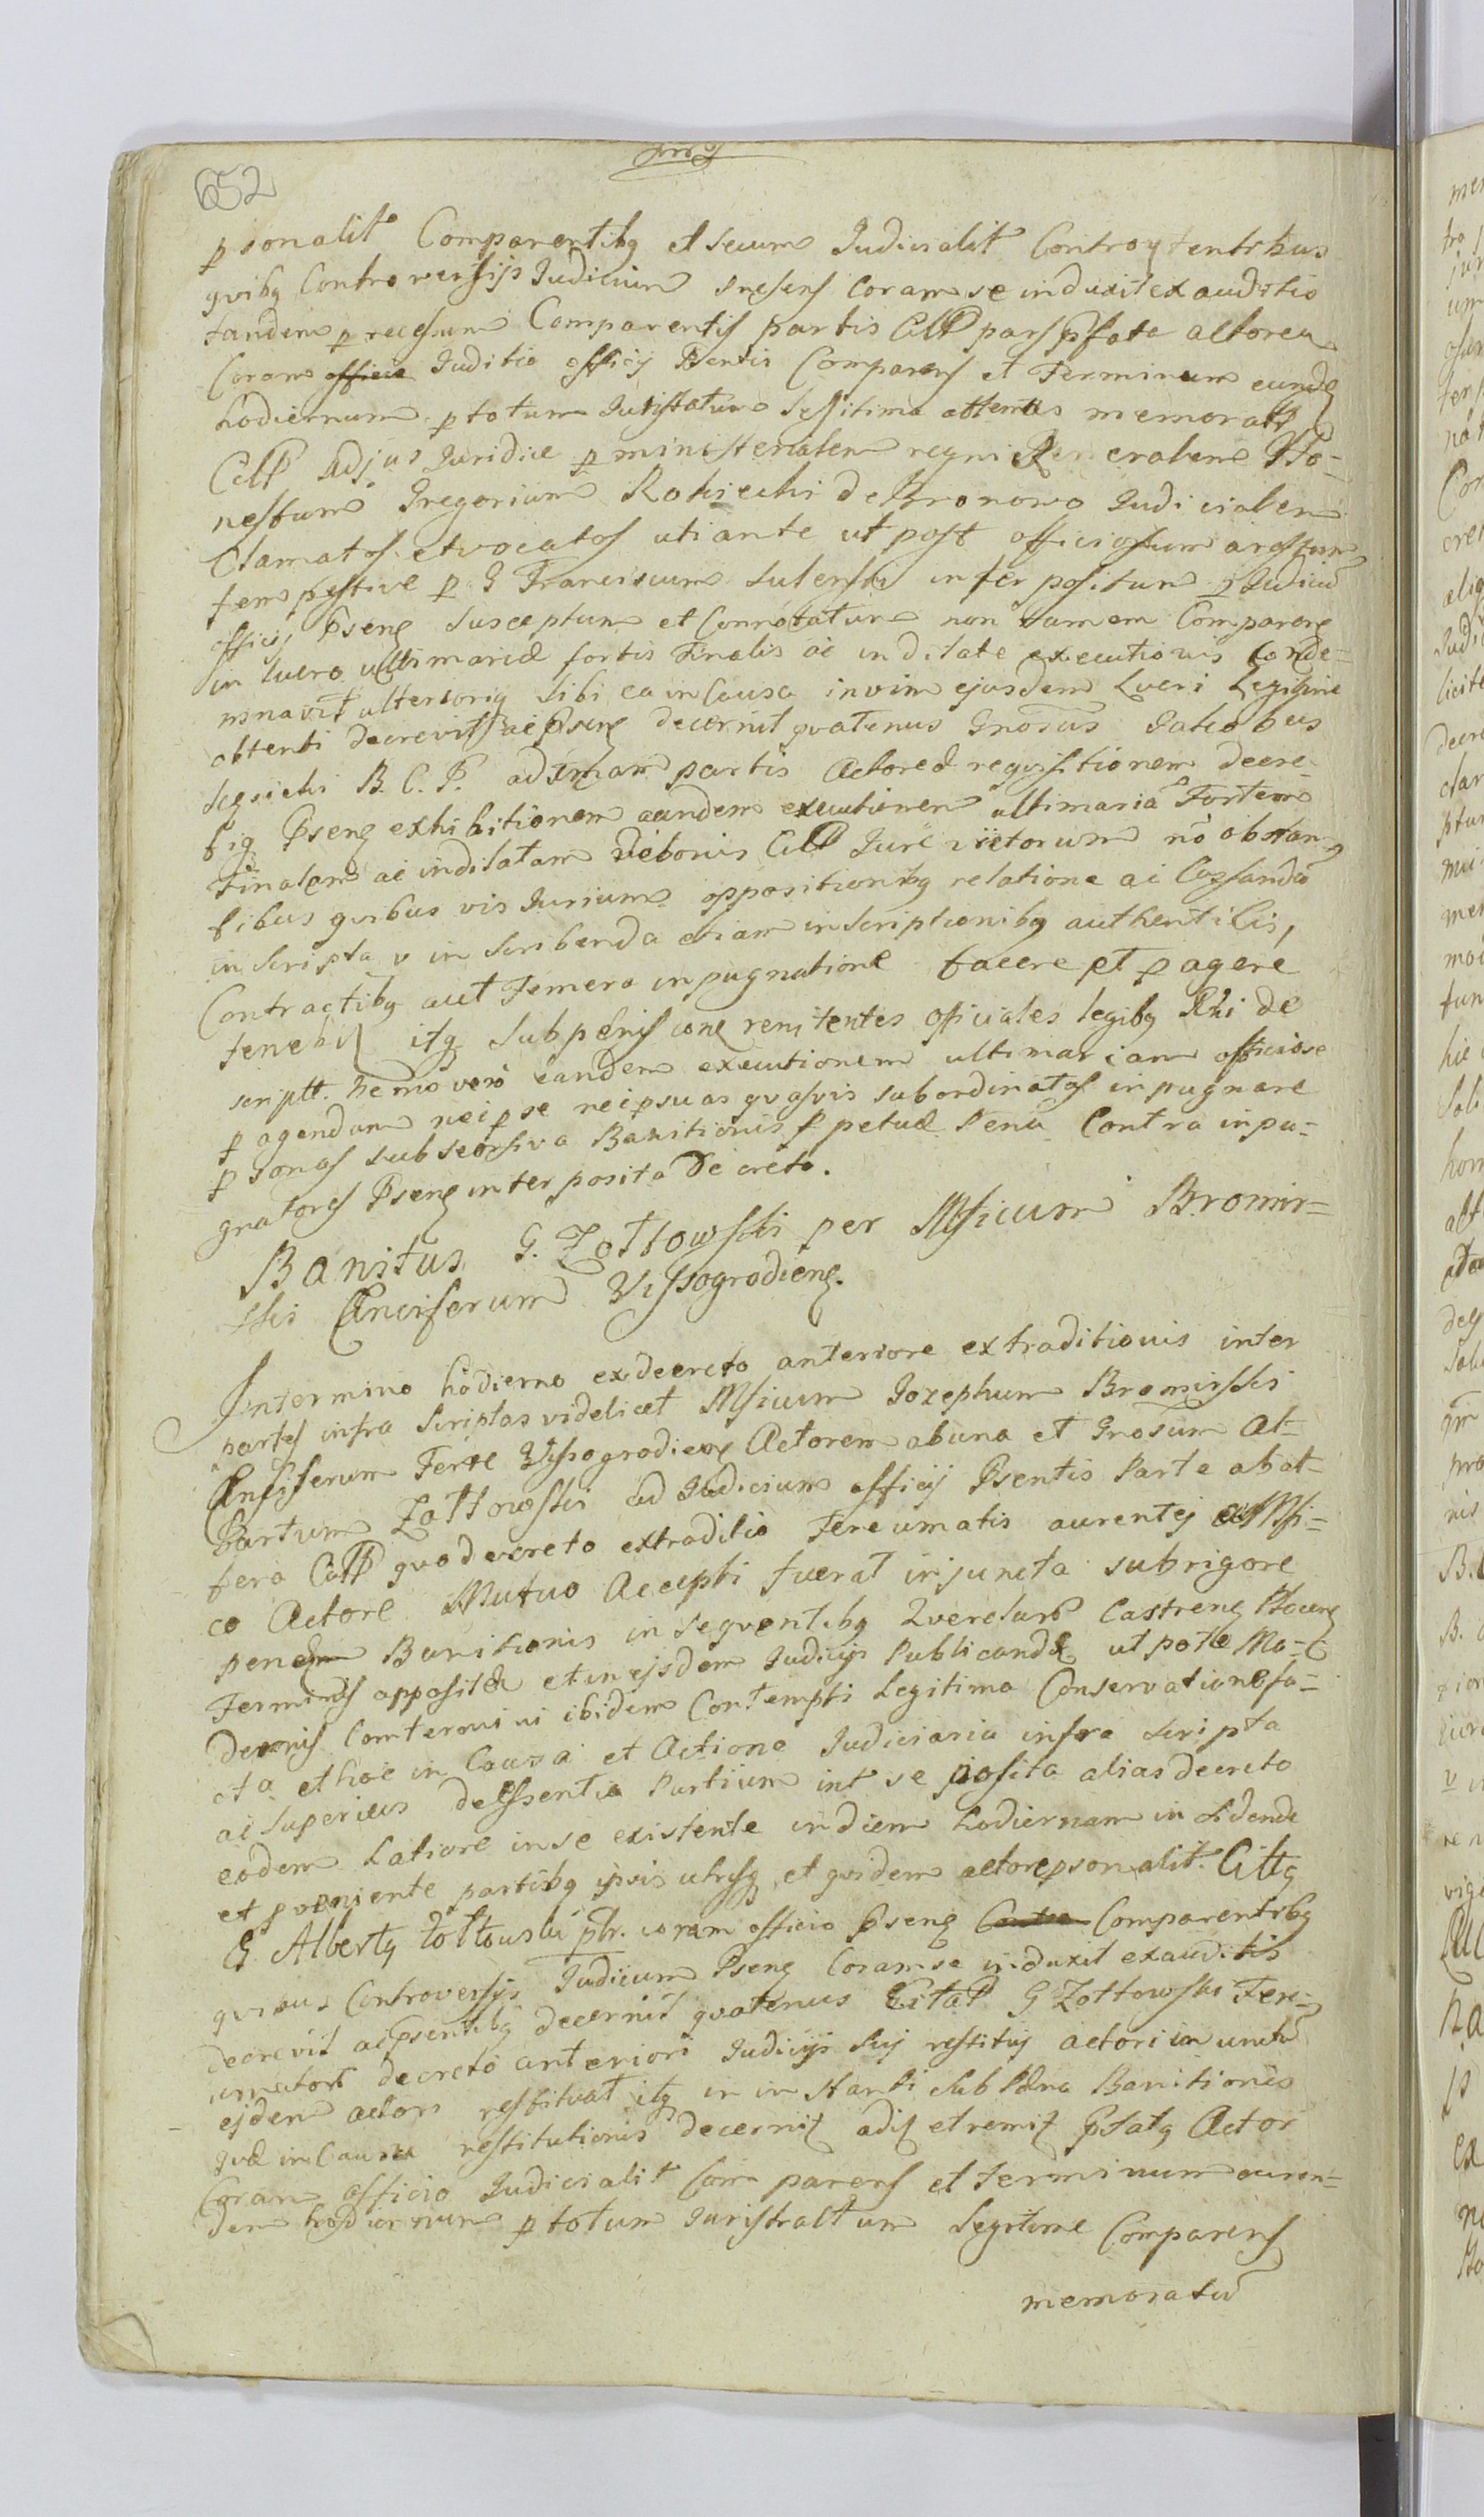 652
psonalit Comparentibq et secum Judicialit Controvtentibus
qvibq Controversijs Judicium Presens Coram se induxit ex auditis
tandem p recessum Comparentis partis Citt pars psfata actorea
Coram officio Juditio officij Psentis Comparens et Terminum eunde
hodiernum p totum Juristatum legitime attentas memoratt
Citt adjus Juridice p ministerialem regni Generalem Ho-
nestum Gregorium Rokicki de Bronowo Judicialem
Clamatos et vocatos uti ante ut post officiosum arestum
tempestive p G Franciscum Sulenski inter positum p Judiciu
officij Psens Susceptum et Connotatum non tamem Comparen
in lucro ultimariæ fortis Finalis ac indilate executionis Conde-
mnavit ulteriorq Sibi ea in Causa invim ejusdem Lucri Legitime
obtenti decrevit ac Psens decernit qvatenus Gnosus Jacobus
B. C. P. ad primam partis Actoreæ reqvisitionem decre-
tiq Psens exhibitionem eandem executionem ultimaria Fortem
Finalem ac indilatam debonis Citt Jure victorum nō obstan
tibus qvibus vis Jurium oppositionibq relatione ac Cassanda
inscripta v inscribenda etiam inscriptionibq authenticis,
Contractibq aut Temera inpugnatione facere et pagere
tenebit itq Subpænis cone renitentes oficiales legibq Rni de
scriptt. nemo vero eandem executionem ultimariam officiose
p agendam nec p se nec p suas qvasvis subordinatas inpugnare
p sonas sub seorsiva Banitionis p petuæ Pena Contra inpu-
gnatores Psens interposita Decreto.
Banitus G. Zottowski per Msicum Bromir-
ski Ensiferum Vissogrodiens.
Intermino hodierno exdecreto anteriore extraditionis inter
partes infra Scriptas videlicet Msicum Jozephum Bromirski
Ensiferum Terre Vissogrodiens Actorem abuna et Gnosum Al-
bertum Zottowski ad Judicium officij Psentis Parte abal-
tera Citt qvo decreto extraditio Fereumatis aurentej a Msi-
co Actore Mutuo Accepti fuerat injuncta subrigore
penarum Banitionis in seqventibq Qverelarū Castrens Plocens
Terminis appositæ et in ejsdem Judicijs Publicandæ ut pote Mo-
dernis Conterovini ibidem Contempti Legitima Conservatione fa-
cta et hoc in Causa et Actione Judiciaria infra Scripta
ac Superius deßsentia Partium int se posita alias decreto
eodem Latiore inse existente indiem hodiernam incidende
et p veniente partibq ipsis utrisq, et qvidem actore psonalit. Cittq
G Albertq Zottouski ptr. coram officio Psens Contra Comparentibq
qvibus Controversijs Judicium Psens Coram se induxit exauditis
decrevit ac Psentibq decernit qvatenus Citat G Zottowski Fere-
umatori decreto anteriori Judicij Sui restituj actori in unctu
ejdem actori restituat itq in instanti Sub Pæna Banitionis
Qvæ in Causa restitutionis decernit adij et remit Psatq Actor
Coram officio Judicialit Comparens et terminum eun-
dem hodiernum p totum Juristractum Legitime Comparens
memoratū